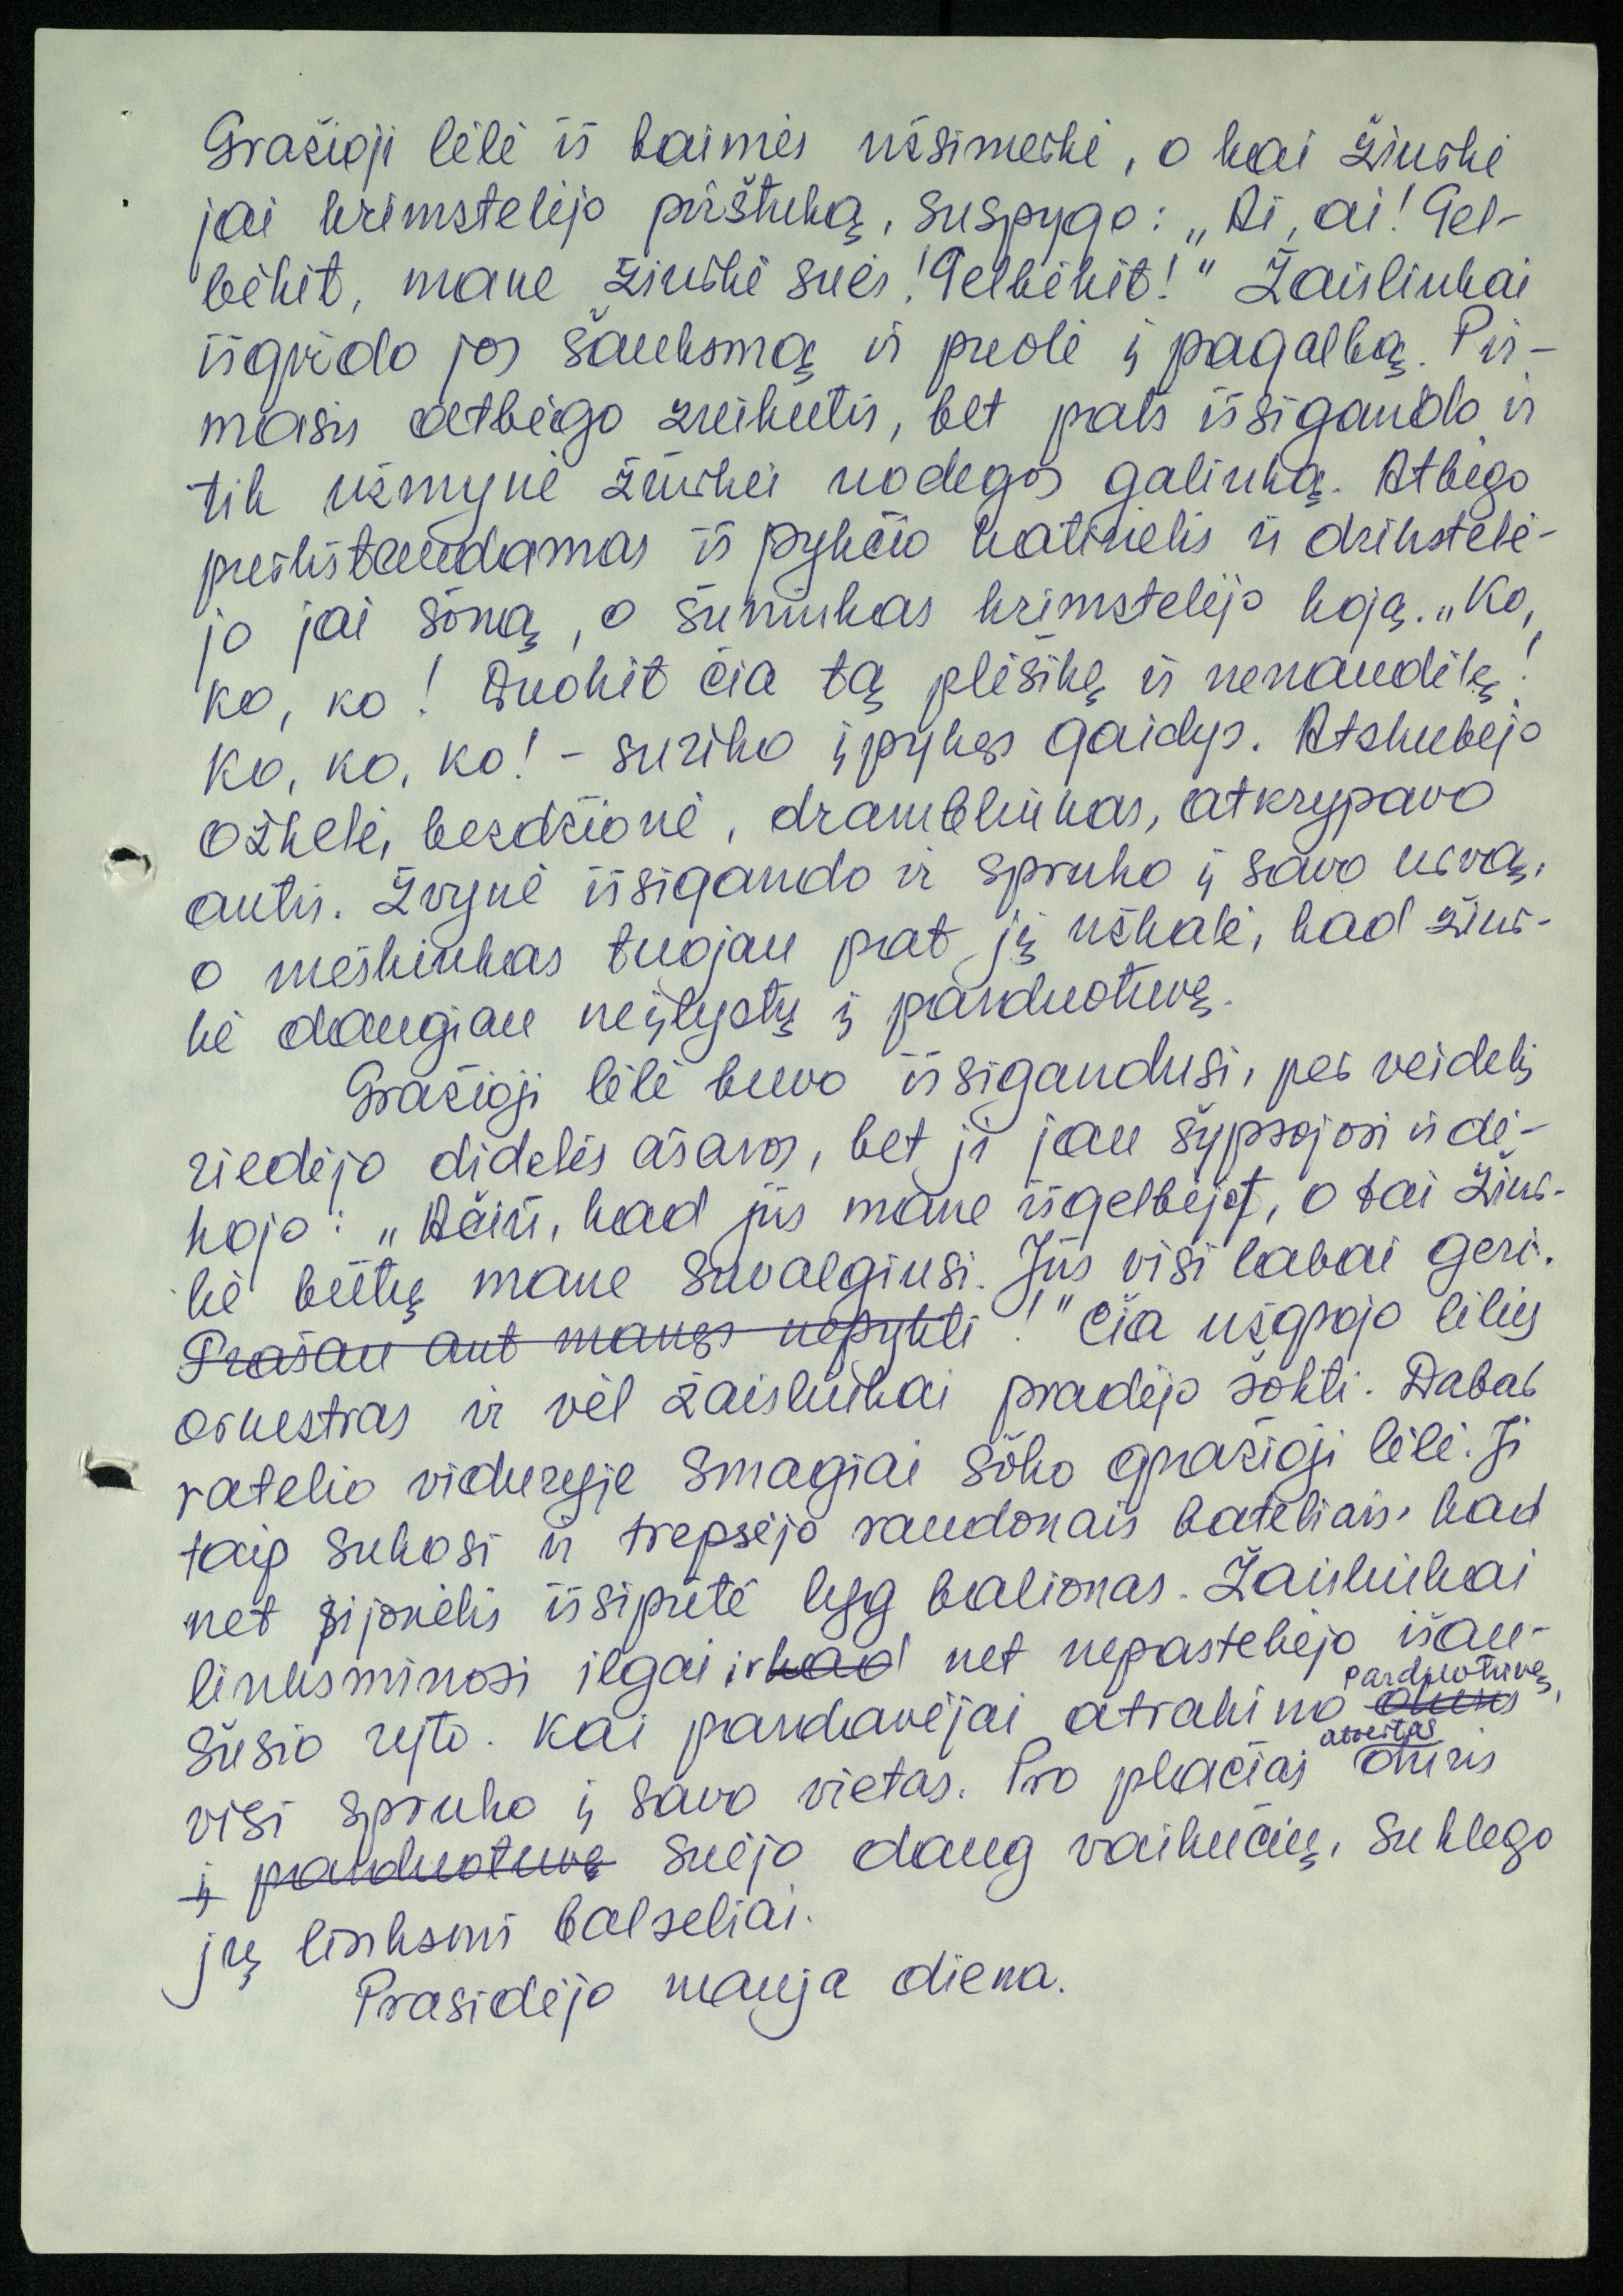 Gražioji lėlė iš baimės užsimerkė, o kai žiurkė
jai krimstelėjo pirštuką, suspygo: „Ai, ai! Gel-
bėkit, mane žiurkė suės! Gelbėkit!" Žaisliukai
išgirdo jos šauksmą ir puolė į pagalbą. Pir-
masis atbėgo zuikutis, bet pats išsigando ir
tik užmynė žiurkei uodegos galiuką. Atbėgo
prunkštaudamas iš pykčio katinėlis ir drikstelė-
jo jai šoną, o šuniukas krimstelėjo koją. „Ko,
ko, ko! Duokit čia tą plėšikę ir nenaudėlę!
Ko, ko, ko! - suriko įpykęs gaidys. Atskubėjo
ožkelė, beždžionė, drambliukas, atkrypavo
antis. Žvynė išsigando ir spruko į savo urvą,
o meškiukas tuojau pat jį užkalė, kad žiur-
kė daugiau neįlystų į parduotuvę.
Gražioji lėlė buvo išsigandusi, per veidelį
riedėjo didelės ašaros, bet ji jau šypsojosi ir dė-
kojo: „Ačiū, kad jūs mane išgelbėjot, o tai žiur-
kė būtų mane suvalgiusi. Jūs visi labai geri.
Prašau ant manęs nepykti!" Čia užgrojo lėlių
orkestras ir vėl žaisliukai pradėjo šokti. Dabar
ratelio viduryje smagiai šoko gražioji lėlė. Ji
taip sukosi ir trepsėjo raudonais bateliais, kad
net sijonėlis išsipūtė lyg balionas. Žaisliukai
linksminosi ilgai ir kad net nepastebėjo išau-
parduotuvę,
šusio ryto. Kai pardavėjai atrakino duris
atvertas
visi spruko į savo vietas. Pro plačias duris
į parduotuvę suėjo daug vaikučių, suklego
jų linksmi balseliai.
Prasidėjo nauja diena.